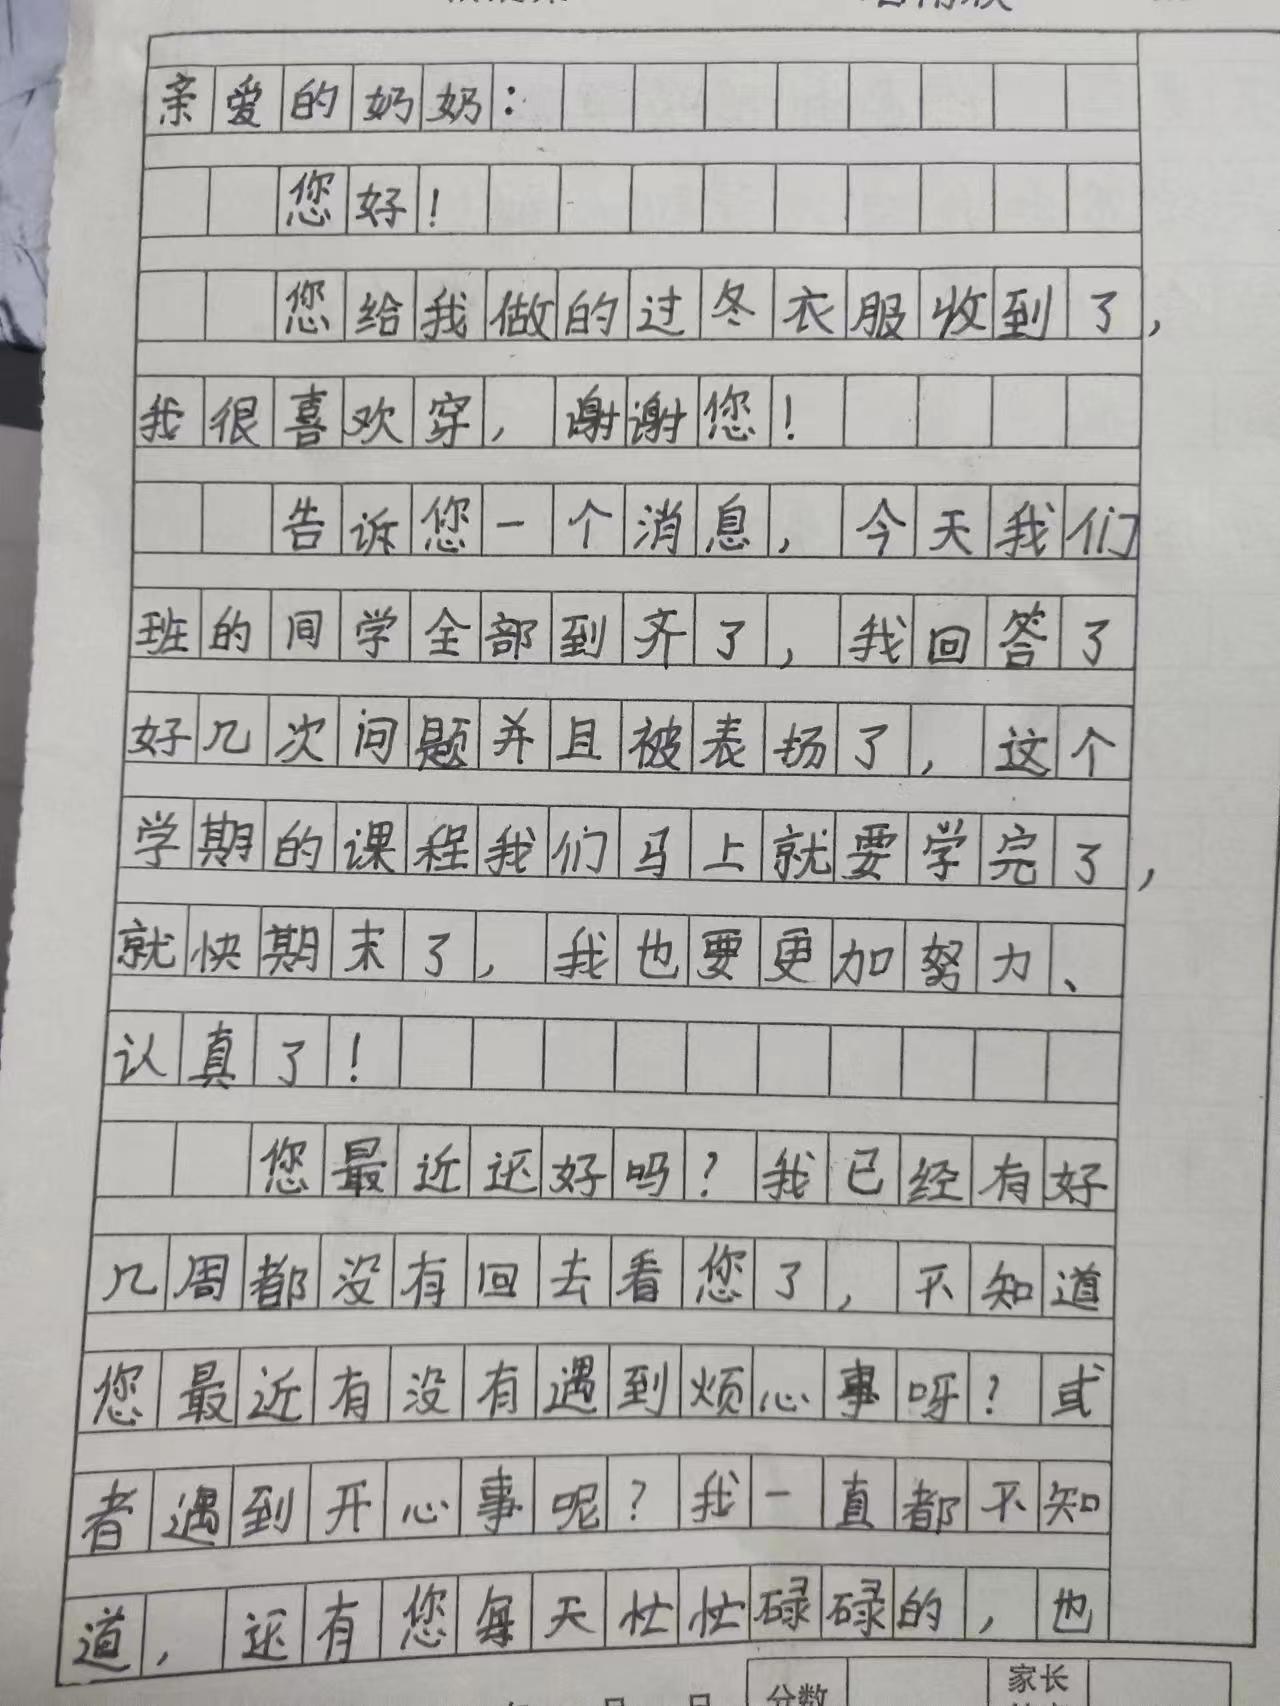 亲爱的奶奶：
您好！
您给我做的过冬衣服收到了，
我很喜欢穿，谢谢您！
告诉您一个消息，今天我们
班的同学全部到齐了，我回答了
好几次问题并且被表扬了，这个
学期的课程我们马上就要学完了，
就快期末了，我也要更加努力、
认真了！
您最近还好吗？我已经有好
几周都没有回去看您了，不知道
您最近有没有遇到烦心事呀？或
者遇到开心事呢？我一直都不知
道，还有您每天忙忙碌碌的，也
分数
家长